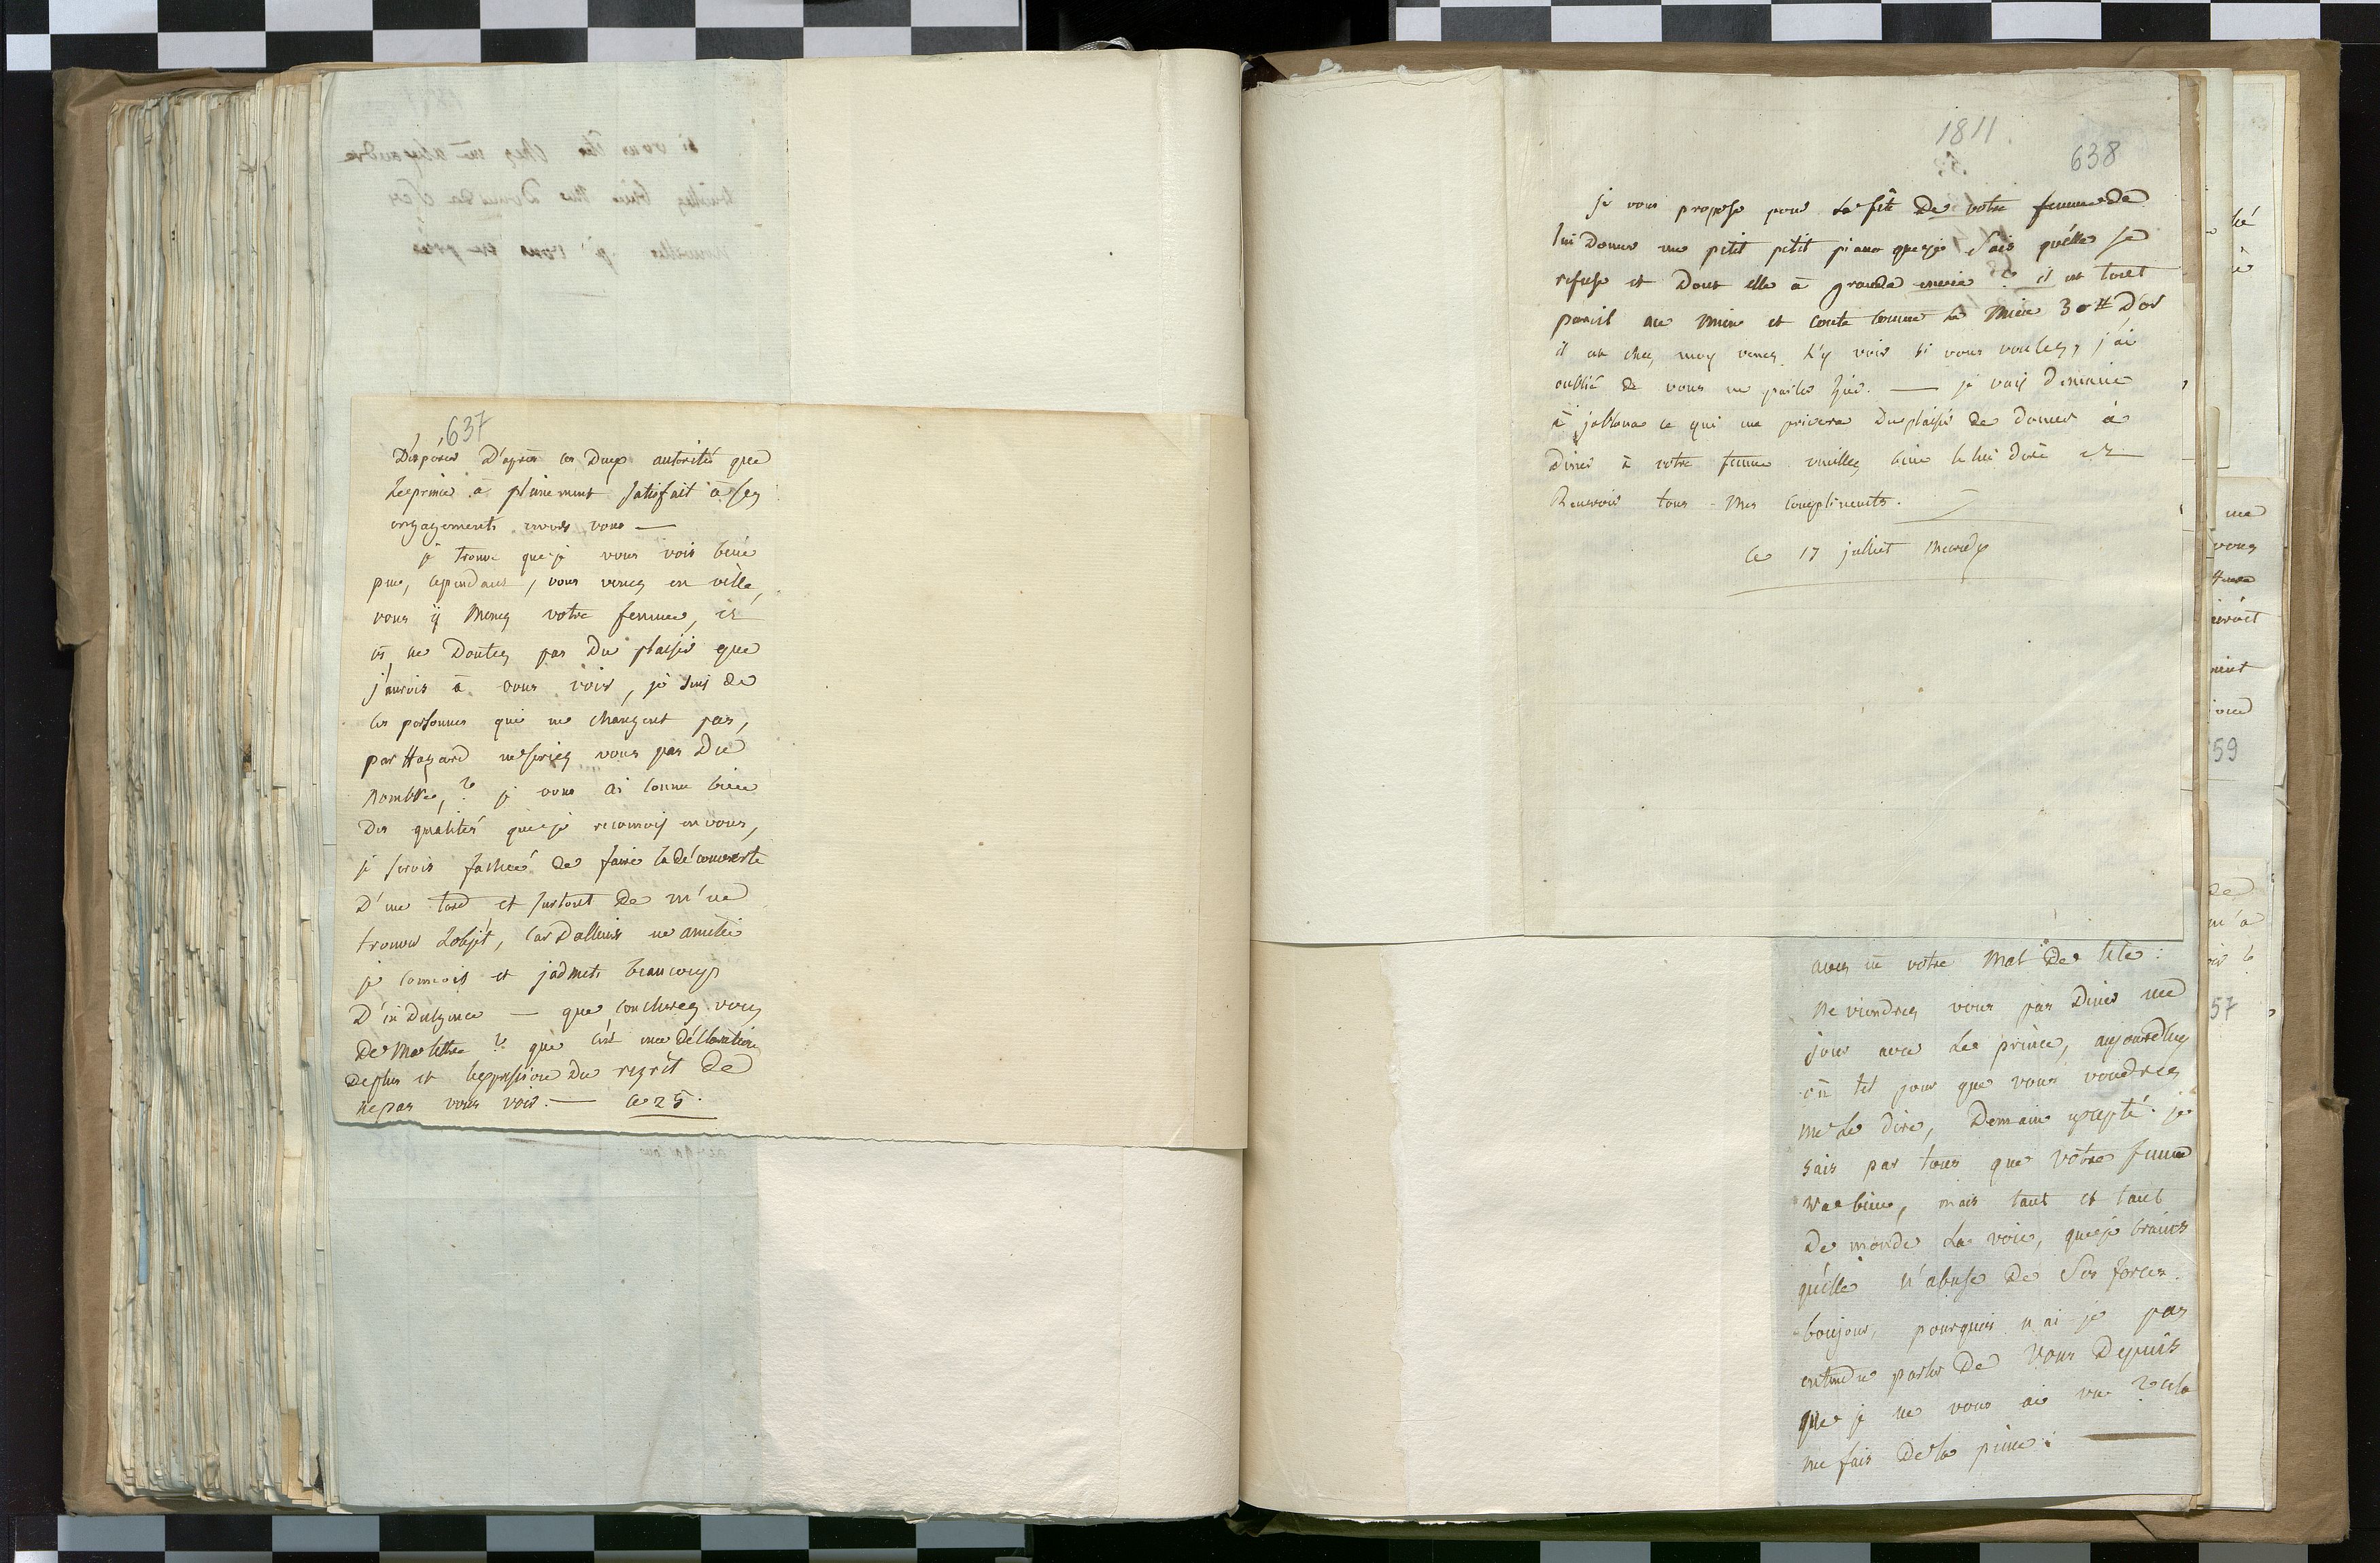 637
Disposés D'après les Deux autorités que
Le prince à pleinement satisfait à ses
engagements envers vous —
je trouve que je vous vois bien
peu, cependant, vous venez en ville,
vous ÿ menez votre femme, et
ne Doutez pas Du plaisir que
j'aurois à vous voir, je suis de
ces personnes qui ne changent pas,
par Hazard ne seriez vous pas Du
nombre, ? je vous ai connu bien
Des qualités que je reconnois en vous,
je serois fachée de faire la découverte
D'un tord et surtout de m'en
trouver L'objèt, car D'alleurs en amitié
je connois et j'admets beaucoup
D'indulgence — que conclurez vous
De Ma lettre ? que c'est une Déclaration
De plus et l'expression Du regrèt De
ne pas vous voir. — Ce 25.
1811
638
je vous propose pour La fête De votre femme de
lui Doner un petit petit piano que je sais qu'elle se
refuse et Dont elle à grande envie ? il est tout
pareil au mien et coute comme Le Mien 30 # D'or
il est chez moy venez L'y voir si vous voulez, j'ai
oublié de vous en parler hier. — je vais Demain
à jablona ce qui me privera Du plaisir de doner à
Diner à votre femme veuillez bien le lui Dire et
Recevoir tous Mes compliments.
Ce 17 julliet Mercredy
avez eu votre Mal De tête :
Ne viendrez vous pas Diner un
jour avec Le prince, aujourdhuy
ou tel jour que vous voudrez
me Le dire, Demain excepté. je
sais par tous que vôtre femme
va bien, mais tant et tant
De monde La voie, que je crains
qu'elle n'abuse De Ses forces.
bonjour, pourquoi n'ai je pas
entendu parler De Vous Depuis
que je ne vous ai vu ? cela
me fais De la peine :
59
57